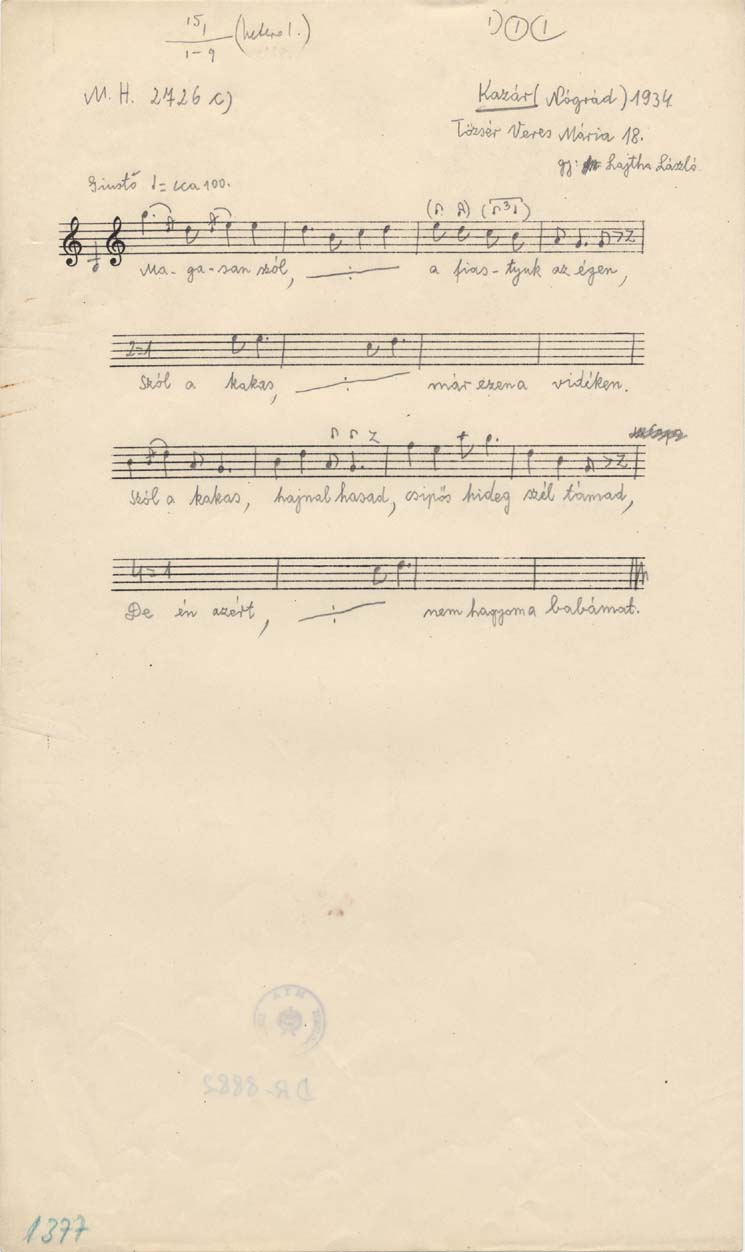 15/1 (heterol.)
1-9
1) 1 1
M. H. 2726 c)
Kazár (Nógrád) 1934
Tőzsér Veres Mária 18.
gy: Lajtha László
Giustó = cca 100.
Ma-ga-san szól, ÷ a fias-tyuk az égen,
2=1
Szól a kakas, ÷ már ezen a vidéken.
Szól a kakas, hajnal hasad, csipős hideg szél támad,
4=1
De én azért, ÷ nem hagyom a babámat.
DR-8882
1377